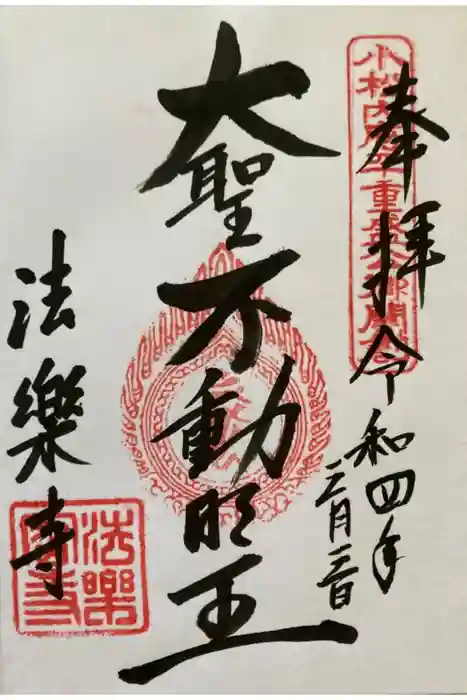 奉拝
令和四年
二月三日
小松内府平重盛公御開基
大聖不動明王
法樂寺
法樂寺